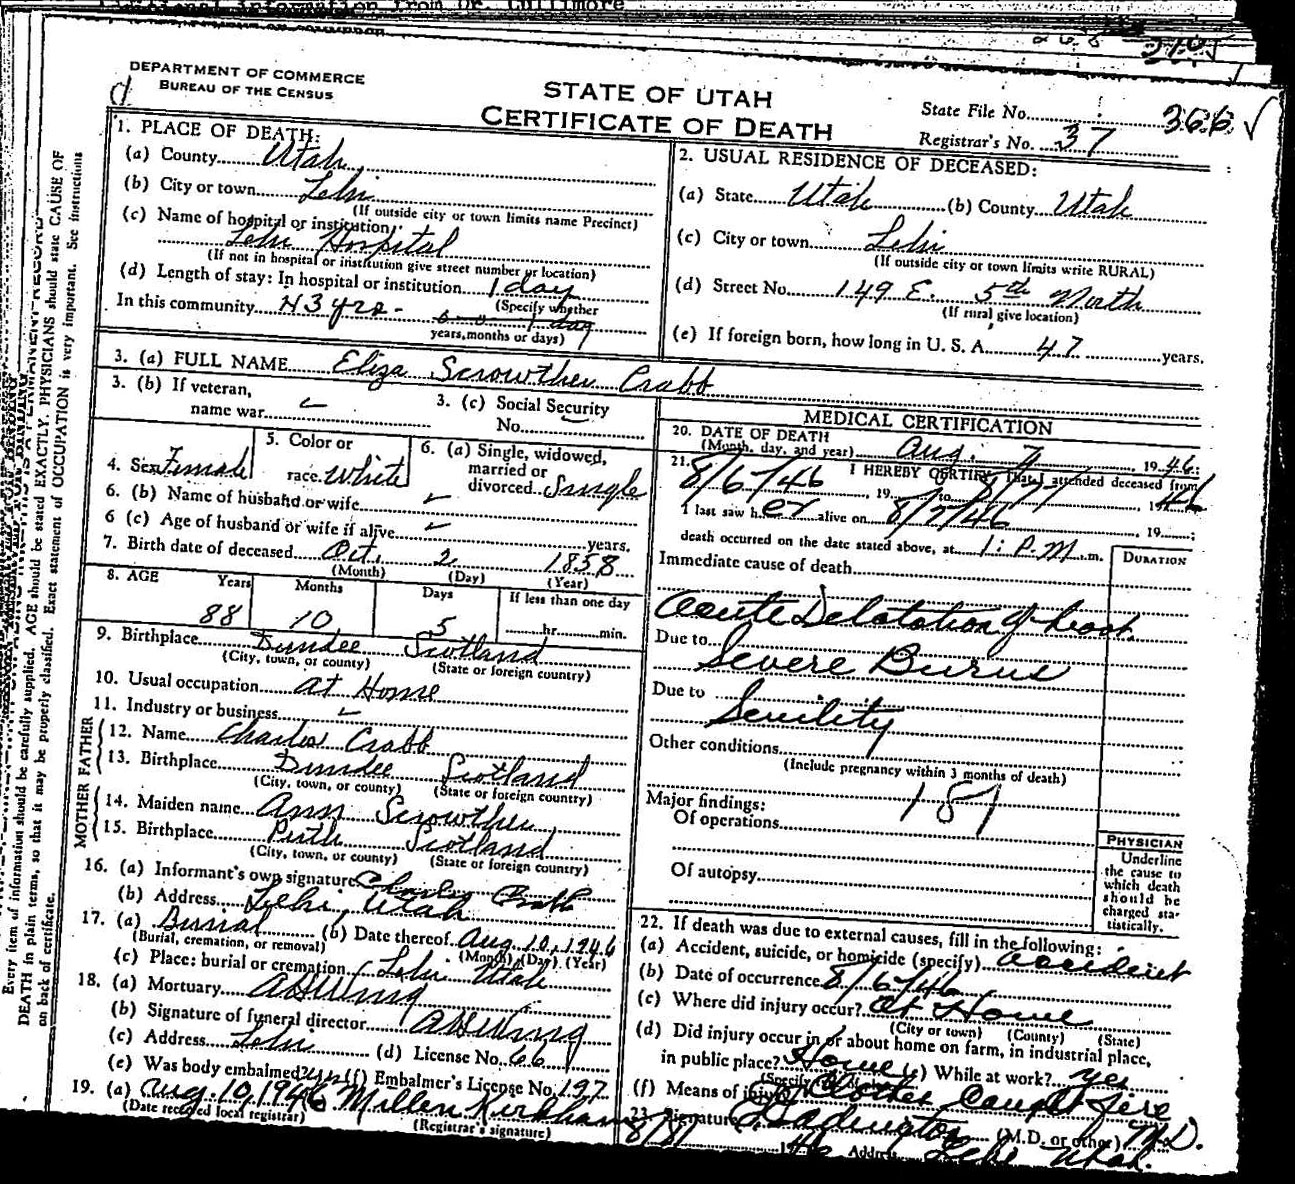 DEPARTMENT OF COMMERCE
BUREAU OF THE CENSUS
STATE OF UTAH
CERTIFICATE OF DEATH
State File No. 366
Registrar's No. 37
1. PLACE OF DEATH:
(a) County Utah
(b) City or town Lehi
(If outside city or town limits name Precinct)
(c) Name of hospital or institution:
Lehi Hospital
(If not in hospital or institution give street number or location)
(d) Length of stay: In hospital or institution 1 day
(Specify whether
In this community 43 yrs. 1 day
years, months or days)
2. USUAL RESIDENCE OF DECEASED:
(a) State Utah (b) County Utah
(c) City or town Lehi
(If outside city or town limits write RURAL)
(d) Street No. 149 E. 5th North
(If rural give location)
(e) If foreign born, how long in U. S. A. 47 years.
3. (a) FULL NAME Eliza Scrowther Crabb
3. (b) If veteran,
name war
3. (c) Social Security
No.
4. Sex Female
5. Color or
race White
6. (a) Single, widowed,
married or
divorced Single
6. (b) Name of husband or wife
6 (c) Age of husband or wife if alive years.
7. Birth date of deceased Oct. 2 1858
(Month) (Day) (Year)
8. AGE Years Months Days If less than one day
88 10 5 hr. min.
9. Birthplace Dundee Scotland
(City, town, or county) (State or foreign country)
10. Usual occupation At Home
11. Industry or business
FATHER
12. Name Charles Crabb
13. Birthplace Dundee Scotland
(City, town, or county) (State or foreign country)
MOTHER
14. Maiden name Ann Scrowther
15. Birthplace Perth Scotland
(City, town, or county) (State or foreign country)
16. (a) Informant's own signature Charles Crabb
(b) Address Lehi, Utah
17. (a) Burial (b) Date thereof Aug. 10, 1946
(Burial, cremation, or removal) (Month) (Day) (Year)
(c) Place: burial or cremation Lehi Utah
18. (a) Mortuary
(b) Signature of funeral director
(c) Address Lehi (d) License No. 66
(e) Was body embalmed? yes (f) Embalmer's License No. 197
19. (a) Aug. 10, 1946 Millen Kirkham
(Date received local registrar) (Registrar's signature)
MEDICAL CERTIFICATION
20. DATE OF DEATH
(Month, day, and year) Aug. 7, 1946
21. I HEREBY CERTIFY, That I attended deceased from
8/6/46, 19 to 8/7/, 1946
I last saw her alive on 8/7/46, 19
death occurred on the date stated above, at 1: P.M. m.
DURATION
Immediate cause of death
Acute Delatation of heart
Due to
Severe Burns
Due to
Senility
Other conditions
(Include pregnancy within 3 months of death)
181
Major findings:
Of operations
Of autopsy
PHYSICIAN
Underline
the cause to
which death
should be
charged sta-
tistically.
22. If death was due to external causes, fill in the following:
(a) Accident, suicide, or homicide (specify) accident
(b) Date of occurrence 8/6/46
(c) Where did injury occur? At Home
(City or town) (County) (State)
(d) Did injury occur in or about home on farm, in industrial place,
in public place? Home While at work? yes
(f) Means of injury Clothes Caught fire
23. Signature (M.D. or other) M.D.
8/8/ 46 Address Lehi Utah.
Every item of information should be carefully supplied. AGE should be stated EXACTLY. PHYSICIANS should state CAUSE OF
DEATH in plain terms, so that it may be properly classified. Exact statement of OCCUPATION is very important. See instructions
on back of certificate.